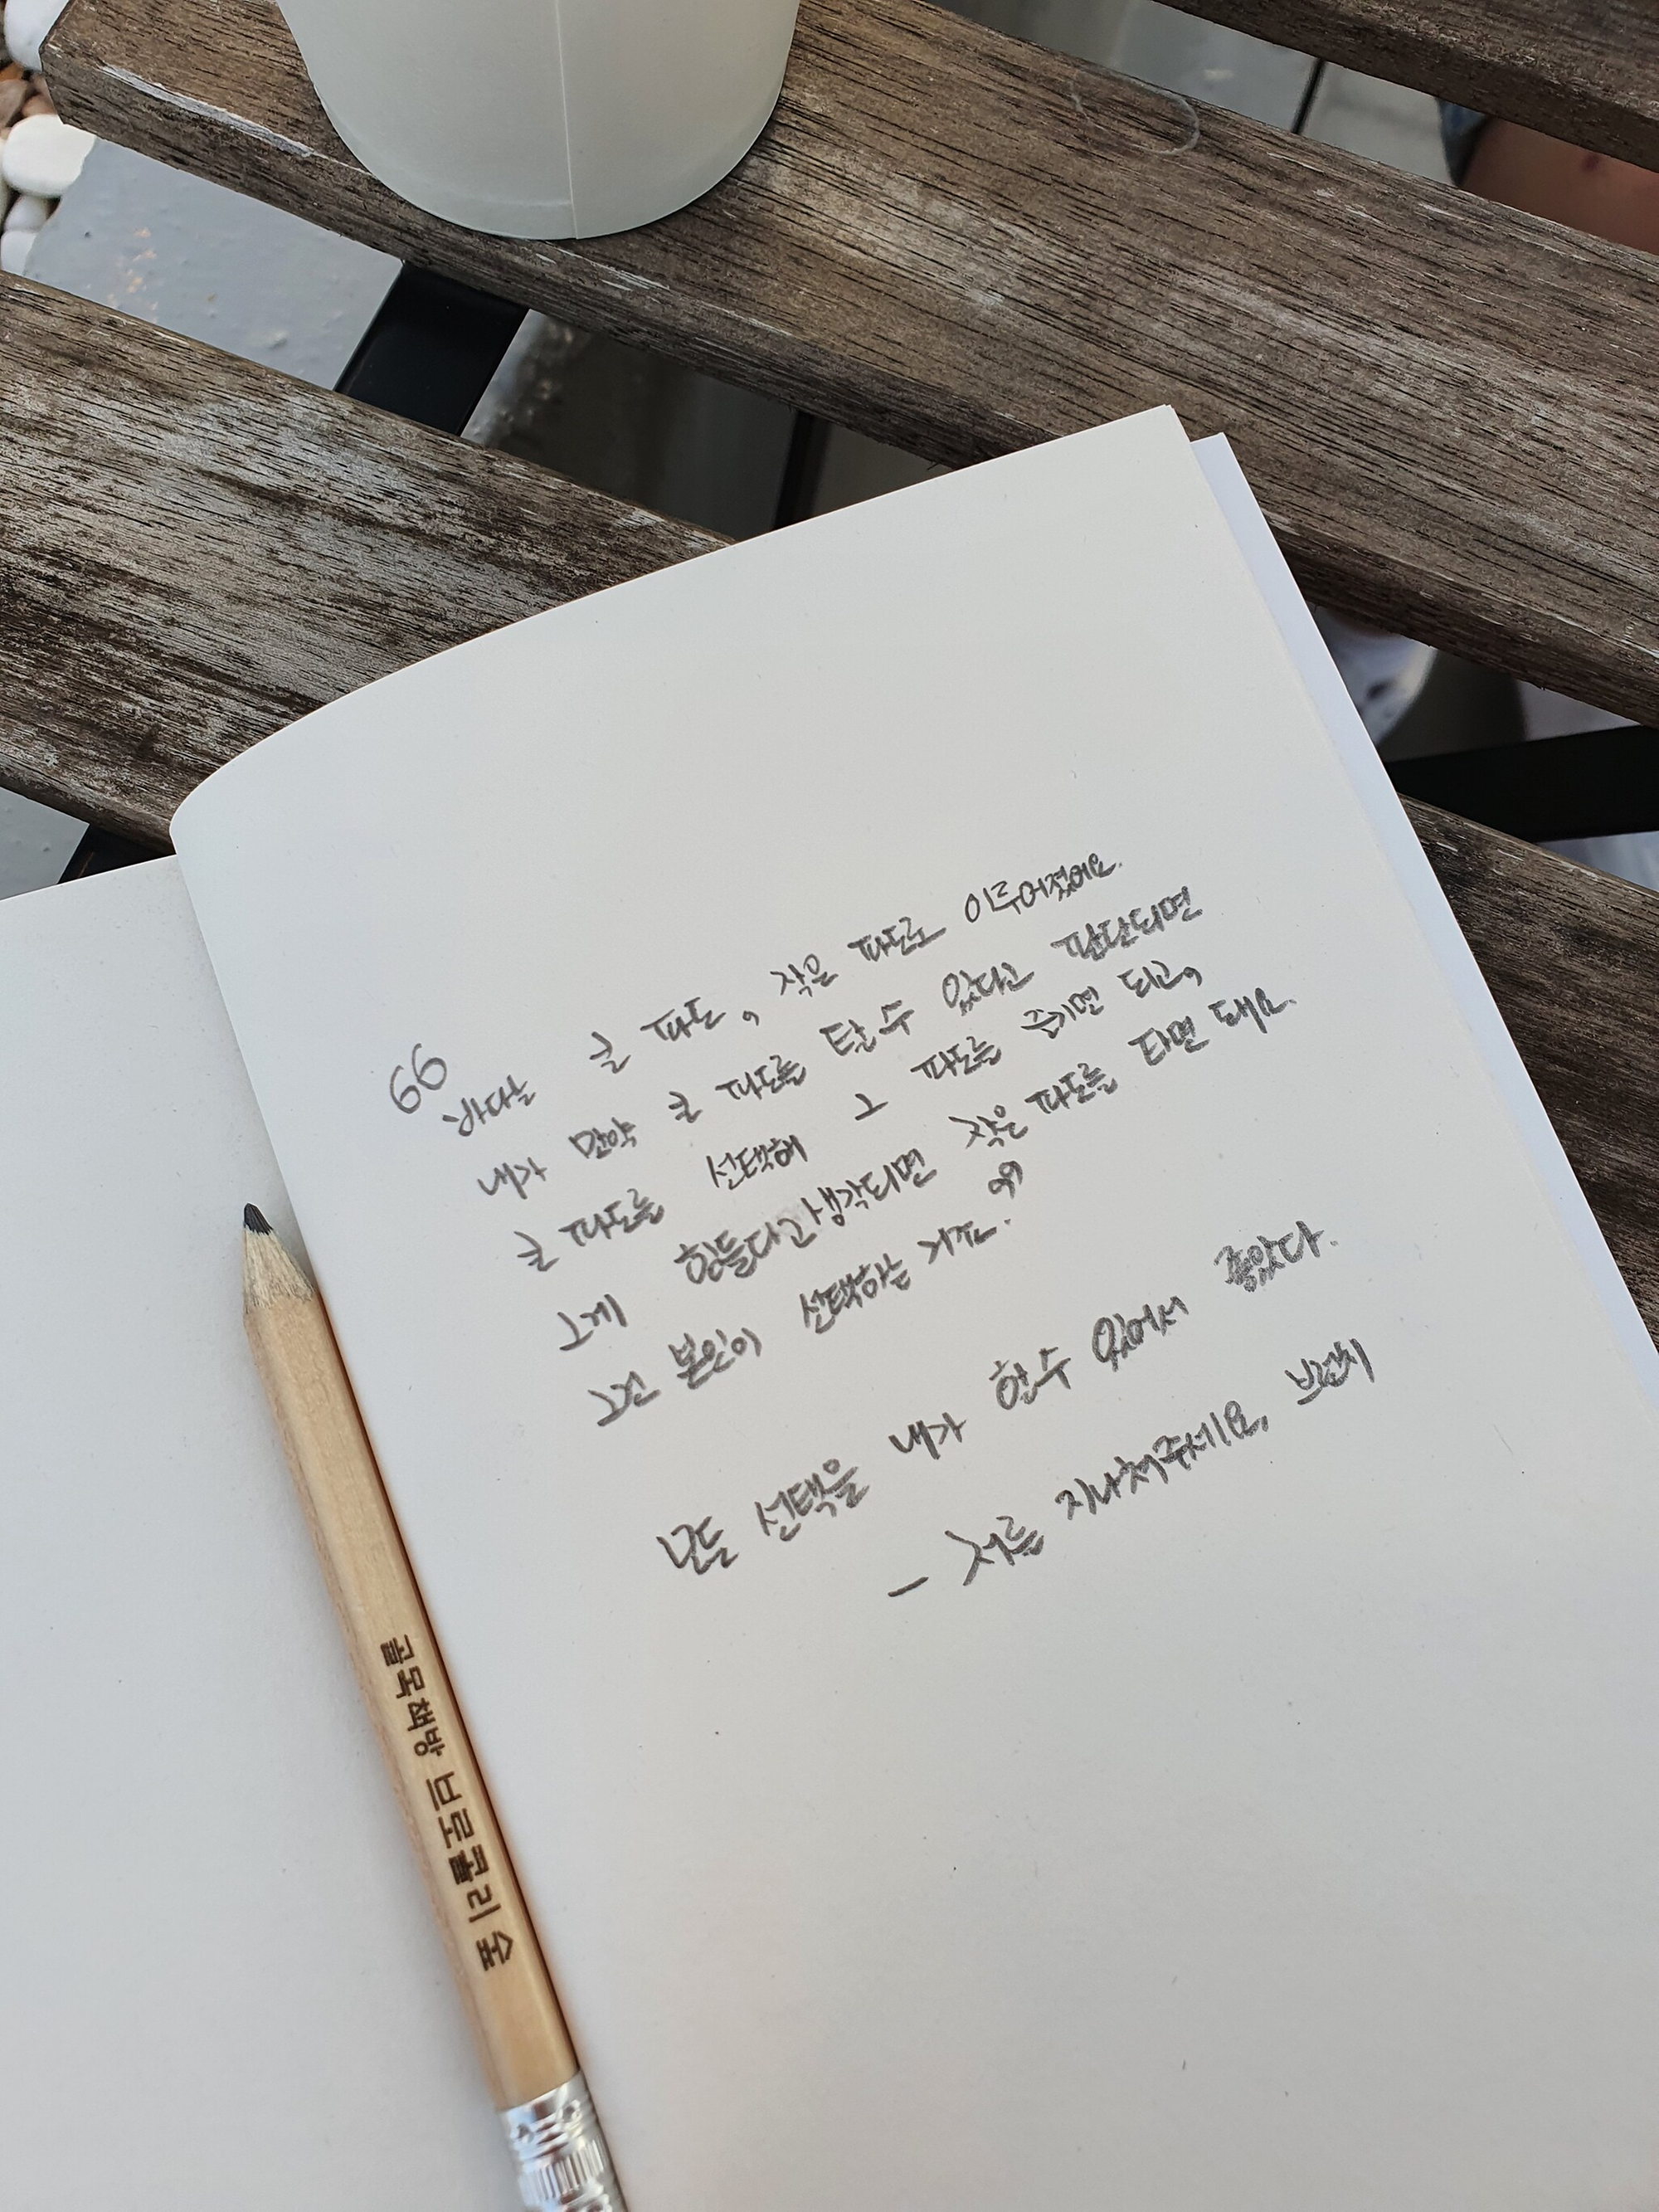 “
바다는 큰 파도, 작은 파도로 이루어졌어요.
내가 만약 큰 파도를 탈 수 있다고 판단되면
큰 파도를 선택해 그 파도를 즐기면 되고,
그게 힘들다고 생각되면 작은 파도를 타면 돼요.
그건 본인이 선택하는 거죠. ”
모든 선택을 내가 할 수 있어서 좋았다.
- 저를 지나쳐주세요,
골목책방 브로콜리 숲